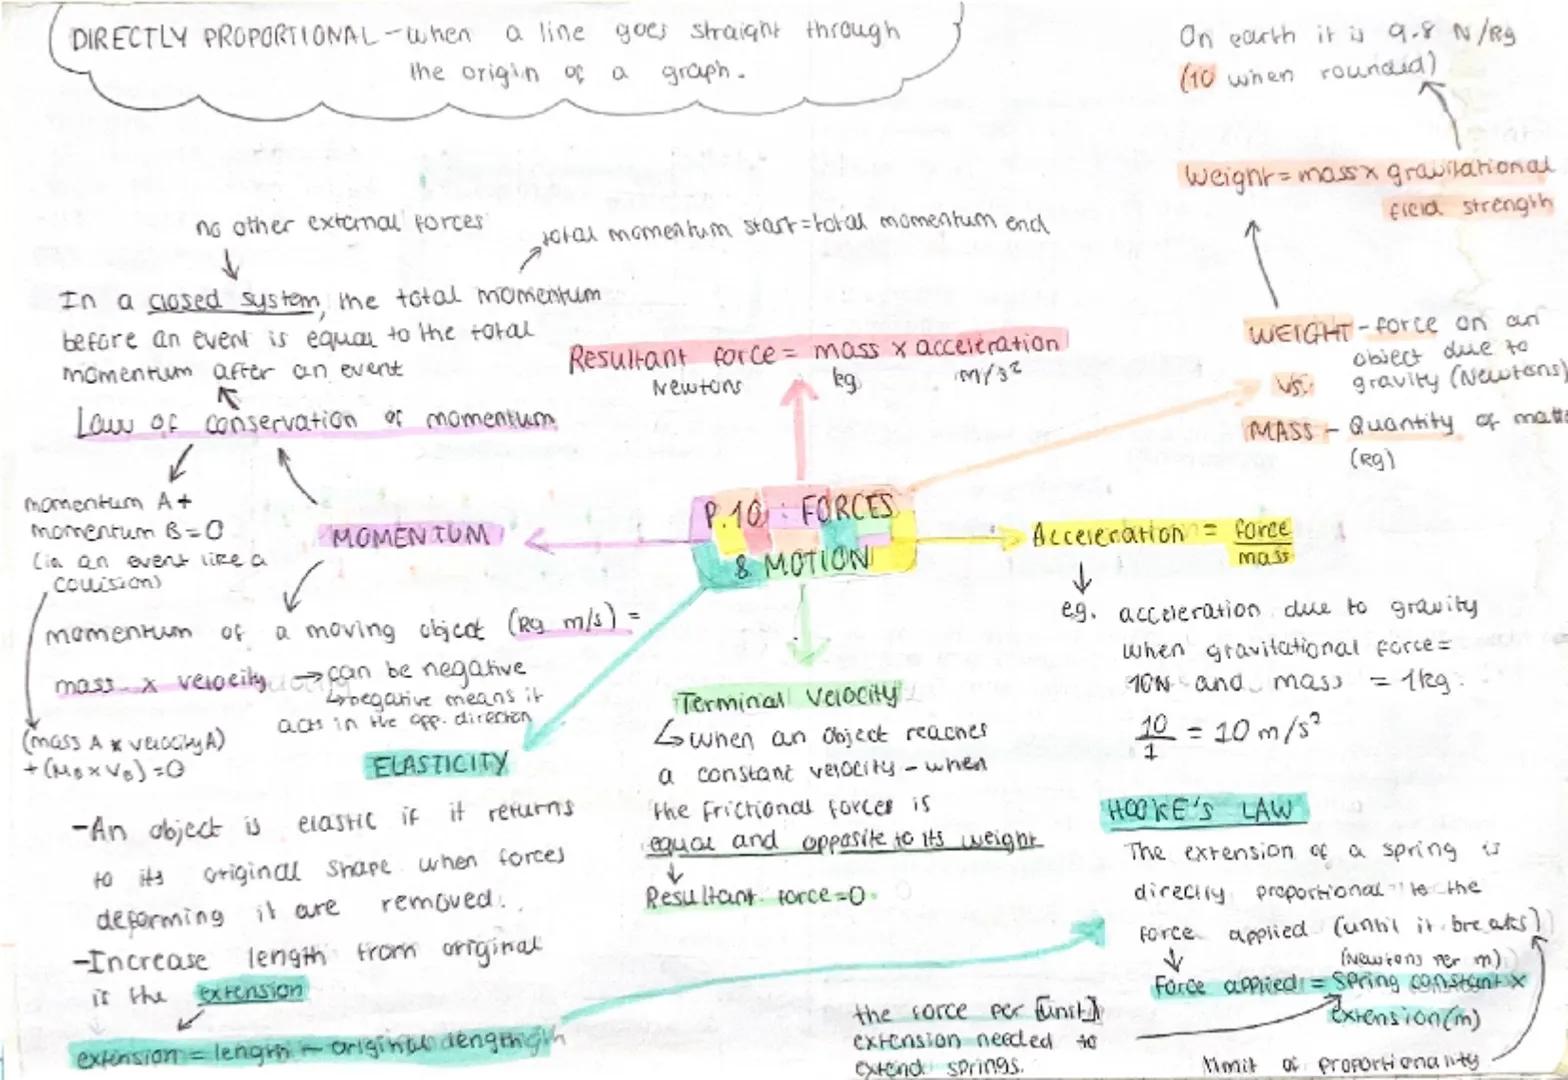 DIRECTLY PROPORTIONAL - when a line goes straight through
the origin of a graph.
On earth it is 9.8 N/kg
(10 when rounded)
Weight = mass x gravitational
field strength
no other external forces
total momentum start = total momentum end
In a closed system, the total momentum
before an event is equal to the total
momentum after an event
Law of conservation of momentum
Resultant force = mass x acceleration
Newtons kg m/s²
WEIGHT - force on an
object due to
gravity (Newtons)
VS.
MASS - Quantity of matt
(kg)
momentum A +
momentum B = 0
(in an event like a
collision)
MOMENTUM
P.10 : FORCES
& MOTION
Acceleration = force
mass
eg. acceleration due to gravity
when gravitational force =
10N and mass = 1kg.
10
1 = 10 m/s²
momentum of a moving object (kg m/s) =
mass x velocity → can be negative
↳ negative means it
acts in the opp. direction
(mass A x velocity A)
+ (M_B x V_B) = 0
Terminal Velocity
↳ when an object reaches
a constant velocity - when
the frictional forces is
equal and opposite to its weight
Resultant force = 0.
ELASTICITY
- An object is elastic if it returns
to its original shape when forces
deforming it are removed.
- Increase length from original
is the extension
extension = length - original length
HOOKE'S LAW
The extension of a spring is
directly proportional to the
force applied (until it breaks)
(Newtons per m)
Force applied = spring constant x
extension (m)
the force per [unit]
extension needed to
extend springs.
limit of proportionality